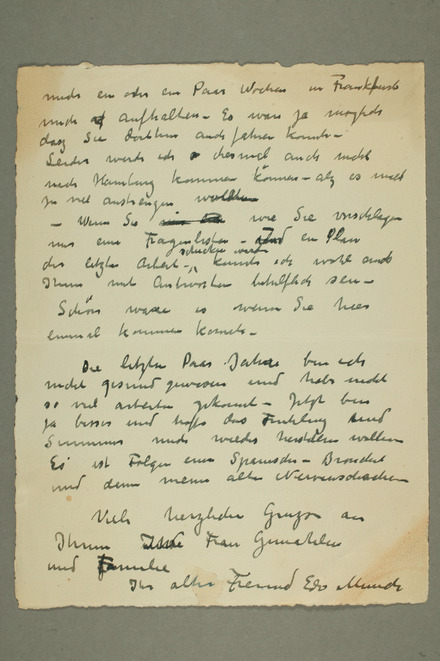 mich ein oder ein Paar Wochen in Frankfurt
mich aufhalten – Es wär ja möglich
dasz Sie dorthin auch fahren könnte –
Leider werde ich diesmal auch nicht
nach Hamburg kommen können – als es mich
zu viel anstrengen wollte
– Wenn Sie wie Sie vorschlagen
mir eine Fragenlisten – und ein Plan
der letzte Arbeit – schicken würde
könnte ich wohl auch
Ihnen mit Antworten behülflich sein –
Schön ware es wenn Sie hier
einmal kommen könnte –
Die letzten Paar Jahre bin ich
nicht gesund gewesen und habe nicht
so viel arbeiten gekonnt – Jetzt bin
ja besser und hoffe das Frühling und
Sommer mich wieder herstellen wollen
Es ist Folgen einer Spanischen – Bronchit
und dann meine alte Nervenschwäche
Viele herzliche Grüsze an
Ihnen Frau Gemahlin
und Familie
Ihr alter Freund Edv Munch